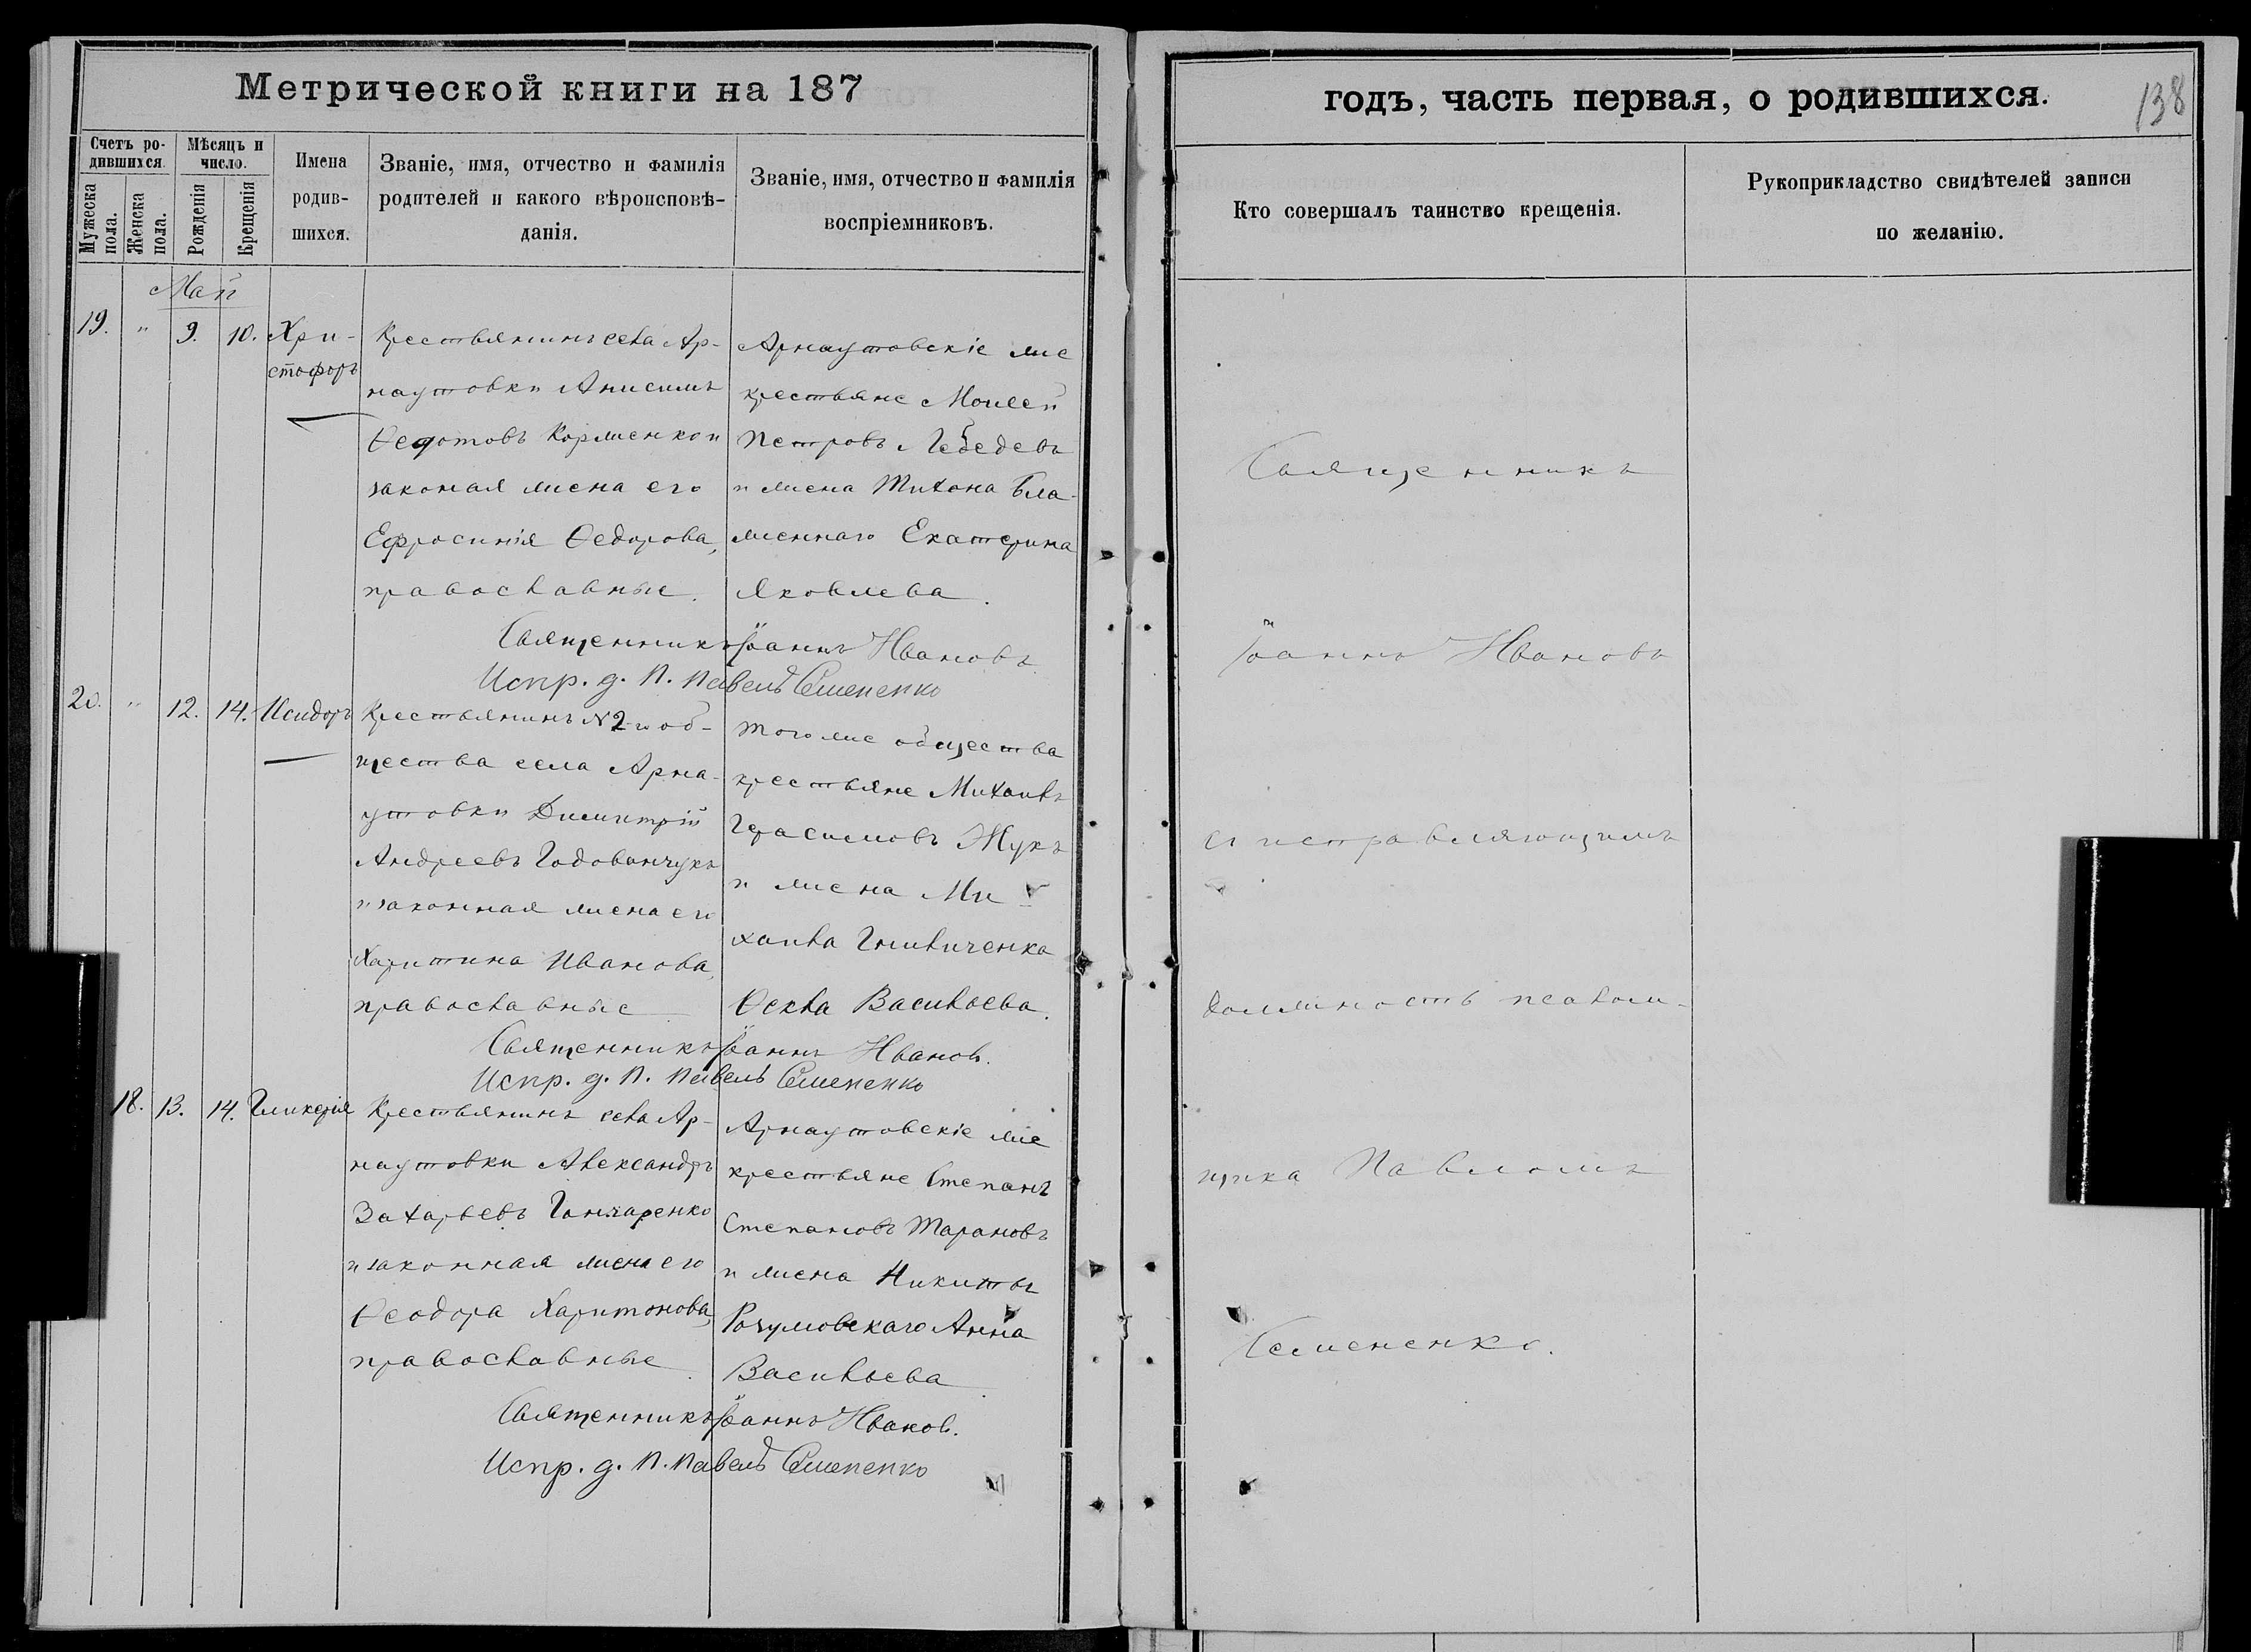 Метрической книги на 187
годъ, часть первая, о родившихся.
138
Счетъ ро-
дившихся.
Мужеска
пола.
Женска
пола.
Мѣсяцъ и
число.
Рожденія
Крещенія
Имена
родив-
шихся.
Званіе, имя, отчество и фамилія
родителей и какого вѣроисповѣ-
данія.
Званіе, имя, отчество и фамилія
воспріемниковъ.
Кто совершалъ таинство крещенія.
Рукоприкладство свидѣтелей записи
по желанію.
Май
19. " 9. 10. Хри-
стофоръ
Крестьянинъ села Ар-
наутовки Анисимъ
Ѳедотовъ Корженко и
законая жена его
Ефросинія Ѳедорова,
православные.
Арнаутовскіе же
крестьяне Моисей
Петровъ Лебедевъ
и жена Тихона Бла-
женнаго Екатерина
Яковлева.
Священникъ Іоаннъ Ивановъ
Испр. д. П. Павелъ Семененко
20. " 12. 14. Исидоръ
Крестьянинъ №2го об-
щества села Арна-
утовки Димитрій
Андреевъ Годованчукъ
и законная жена его
Харитина Иванова,
православные
Того же общества
крестьяне Михаилъ
Герасимовъ Жукъ
и жена Ми-
хаила Гниличенка
Ѳекла Васильева.
Священникъ Іоаннъ Иванов.
Испр. д. П. Павелъ Семененко
18. 13. 14. Гликерія
Крестьянинъ села Ар-
наутовки Александръ
Захарьевъ Гончаренко
и законная жена его
Ѳеодора Харитонова,
православные.
Арнаутовскіе же
крестьяне Степанъ
Степановъ Тарановъ
и жена Никиты
Розумовскаго Анна
Васильева.
Священникъ Іоаннъ Иванов.
Испр. д. П. Павелъ Семененко
Священникъ
Іоаннъ Ивановъ
съ исправляющимъ
должность псалом-
щика Павломъ
Семененко.